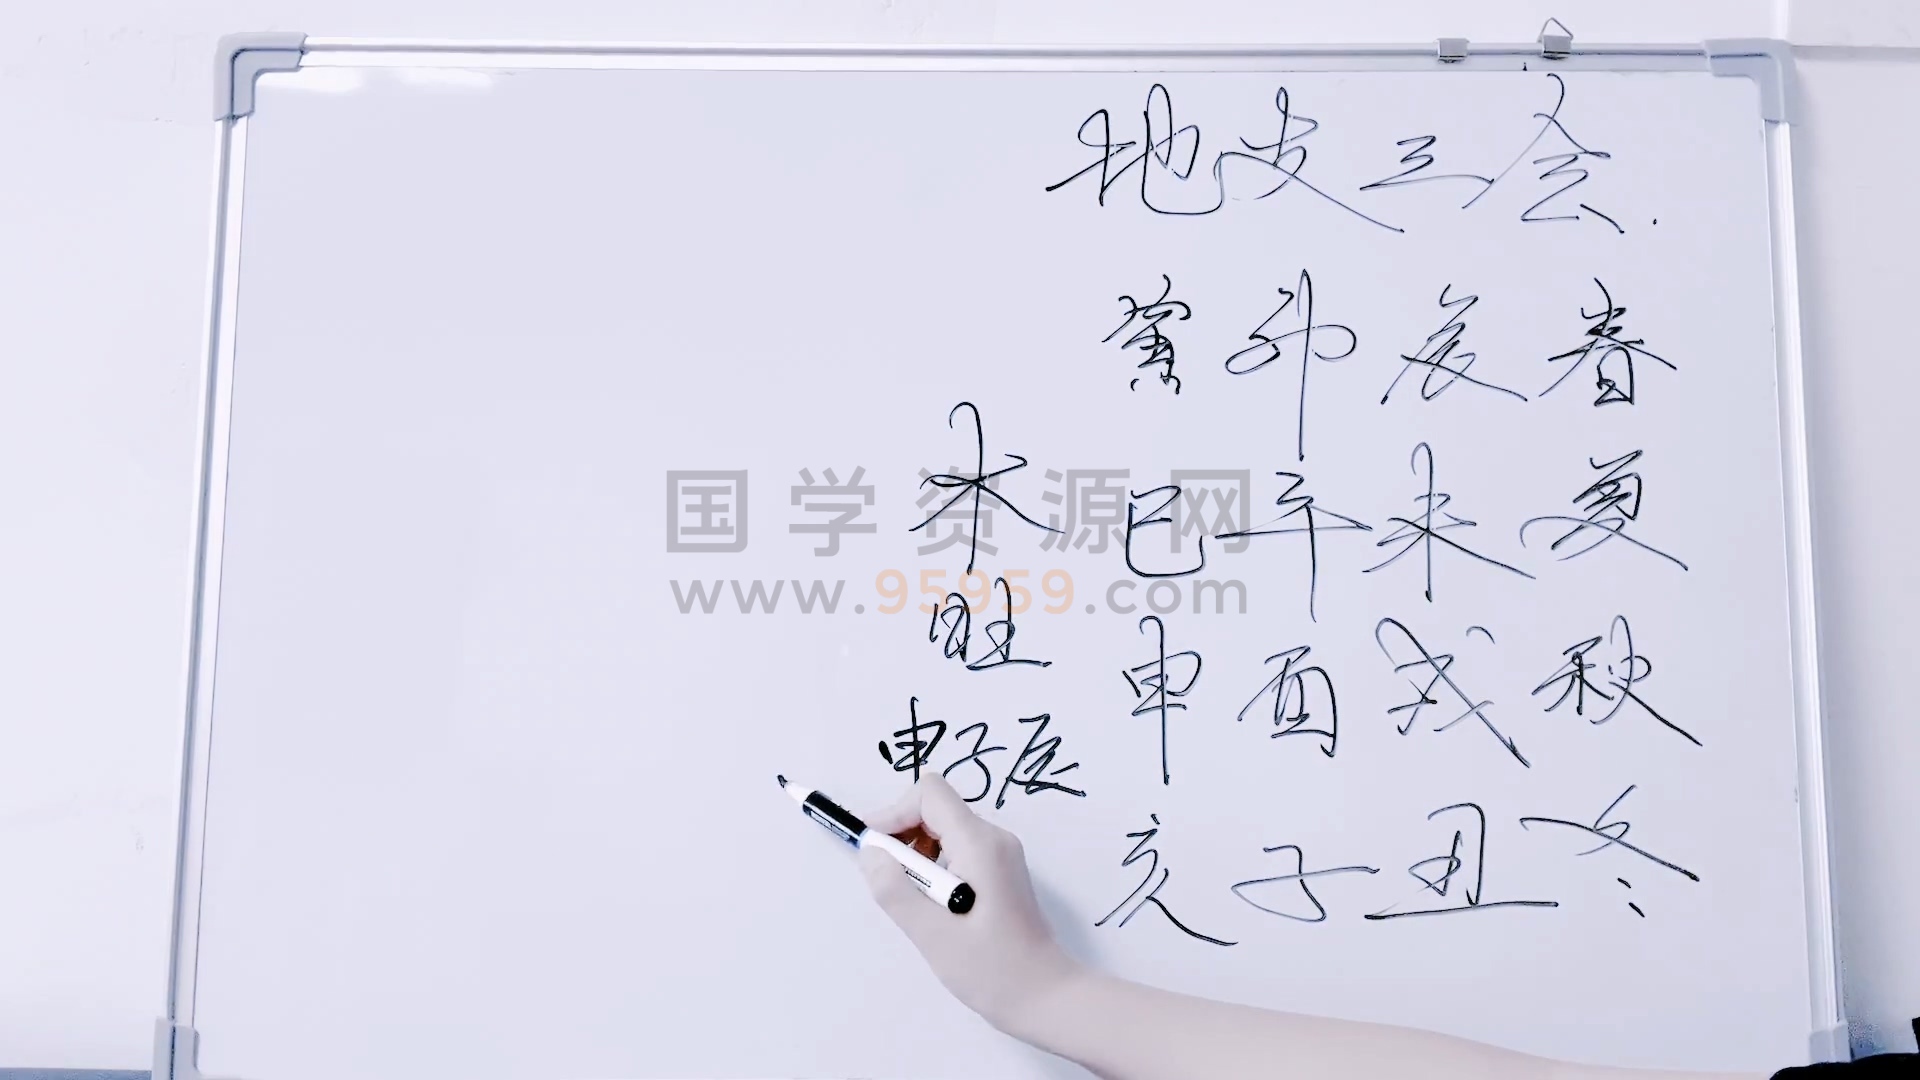 地支三会.
寅卯辰春
巳午未夏
申酉戌秋
亥子丑冬
木
旺
申子辰
国学资源网
www.95959.com